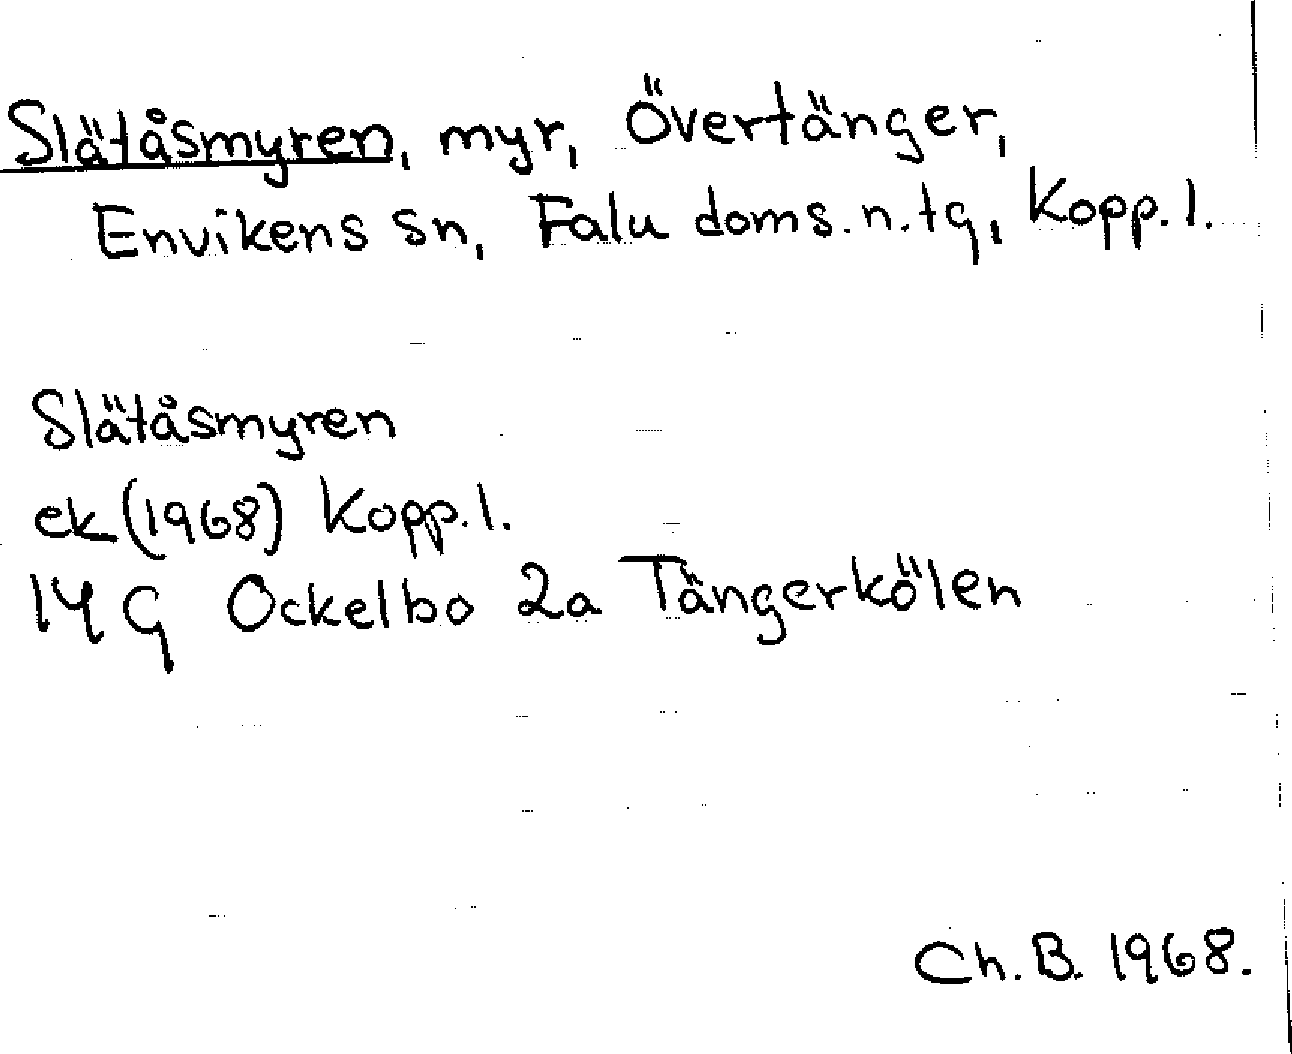 Slätåsmyren, myr, Övertänger,
Envikens sn, Falu doms.n.tg, Kopp.l.
Slätåsmyren
ek (1968) Kopp.l.
14 G Ockelbo 2a Tängerkölen
Ch. B. 1968.